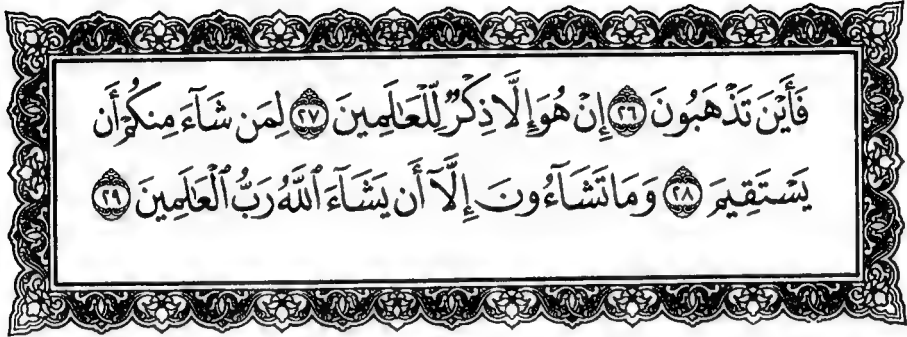 فَأَيْنَ تَذْهَبُونَ ٢٦ إِنْ هُوَ إِلَّا ذِكْرٌ لِّلْعَٰلَمِينَ ٢٧ لِمَن شَآءَ مِنكُمْ أَن
يَسْتَقِيمَ ٢٨ وَمَا تَشَآءُونَ إِلَّآ أَن يَشَآءَ ٱللَّهُ رَبُّ ٱلْعَٰلَمِينَ ٢٩